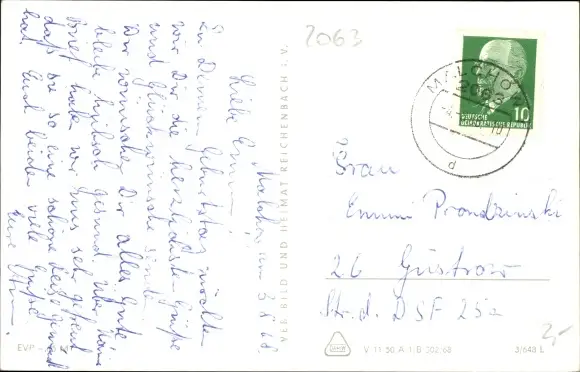 Malchow, am 3.8.68
Liebe Emmi!
Zu Deinem Geburtstag möchten
wir Dir die herzlichsten Grüße
und Glückwünsche senden.
Wir wünschen Dir alles Gute
bleibe hübsch gesund. Über
Brief habe wir uns sehr gefreut
daß Du so eine schöne
hat. Euch beiden viele Grüße
Eure
2063
MALCHOW
2063
10
DEUTSCHE
DEMOKRATISCHE REPUBLIK
d
Frau
Emmi Prondzinski
26 Güstrow
Str. d. DSF 25a
VEB BILD UND HEIMAT REICHENBACH I. V.
EVP
V 11 50 A 1/B 302/68
3/648 L